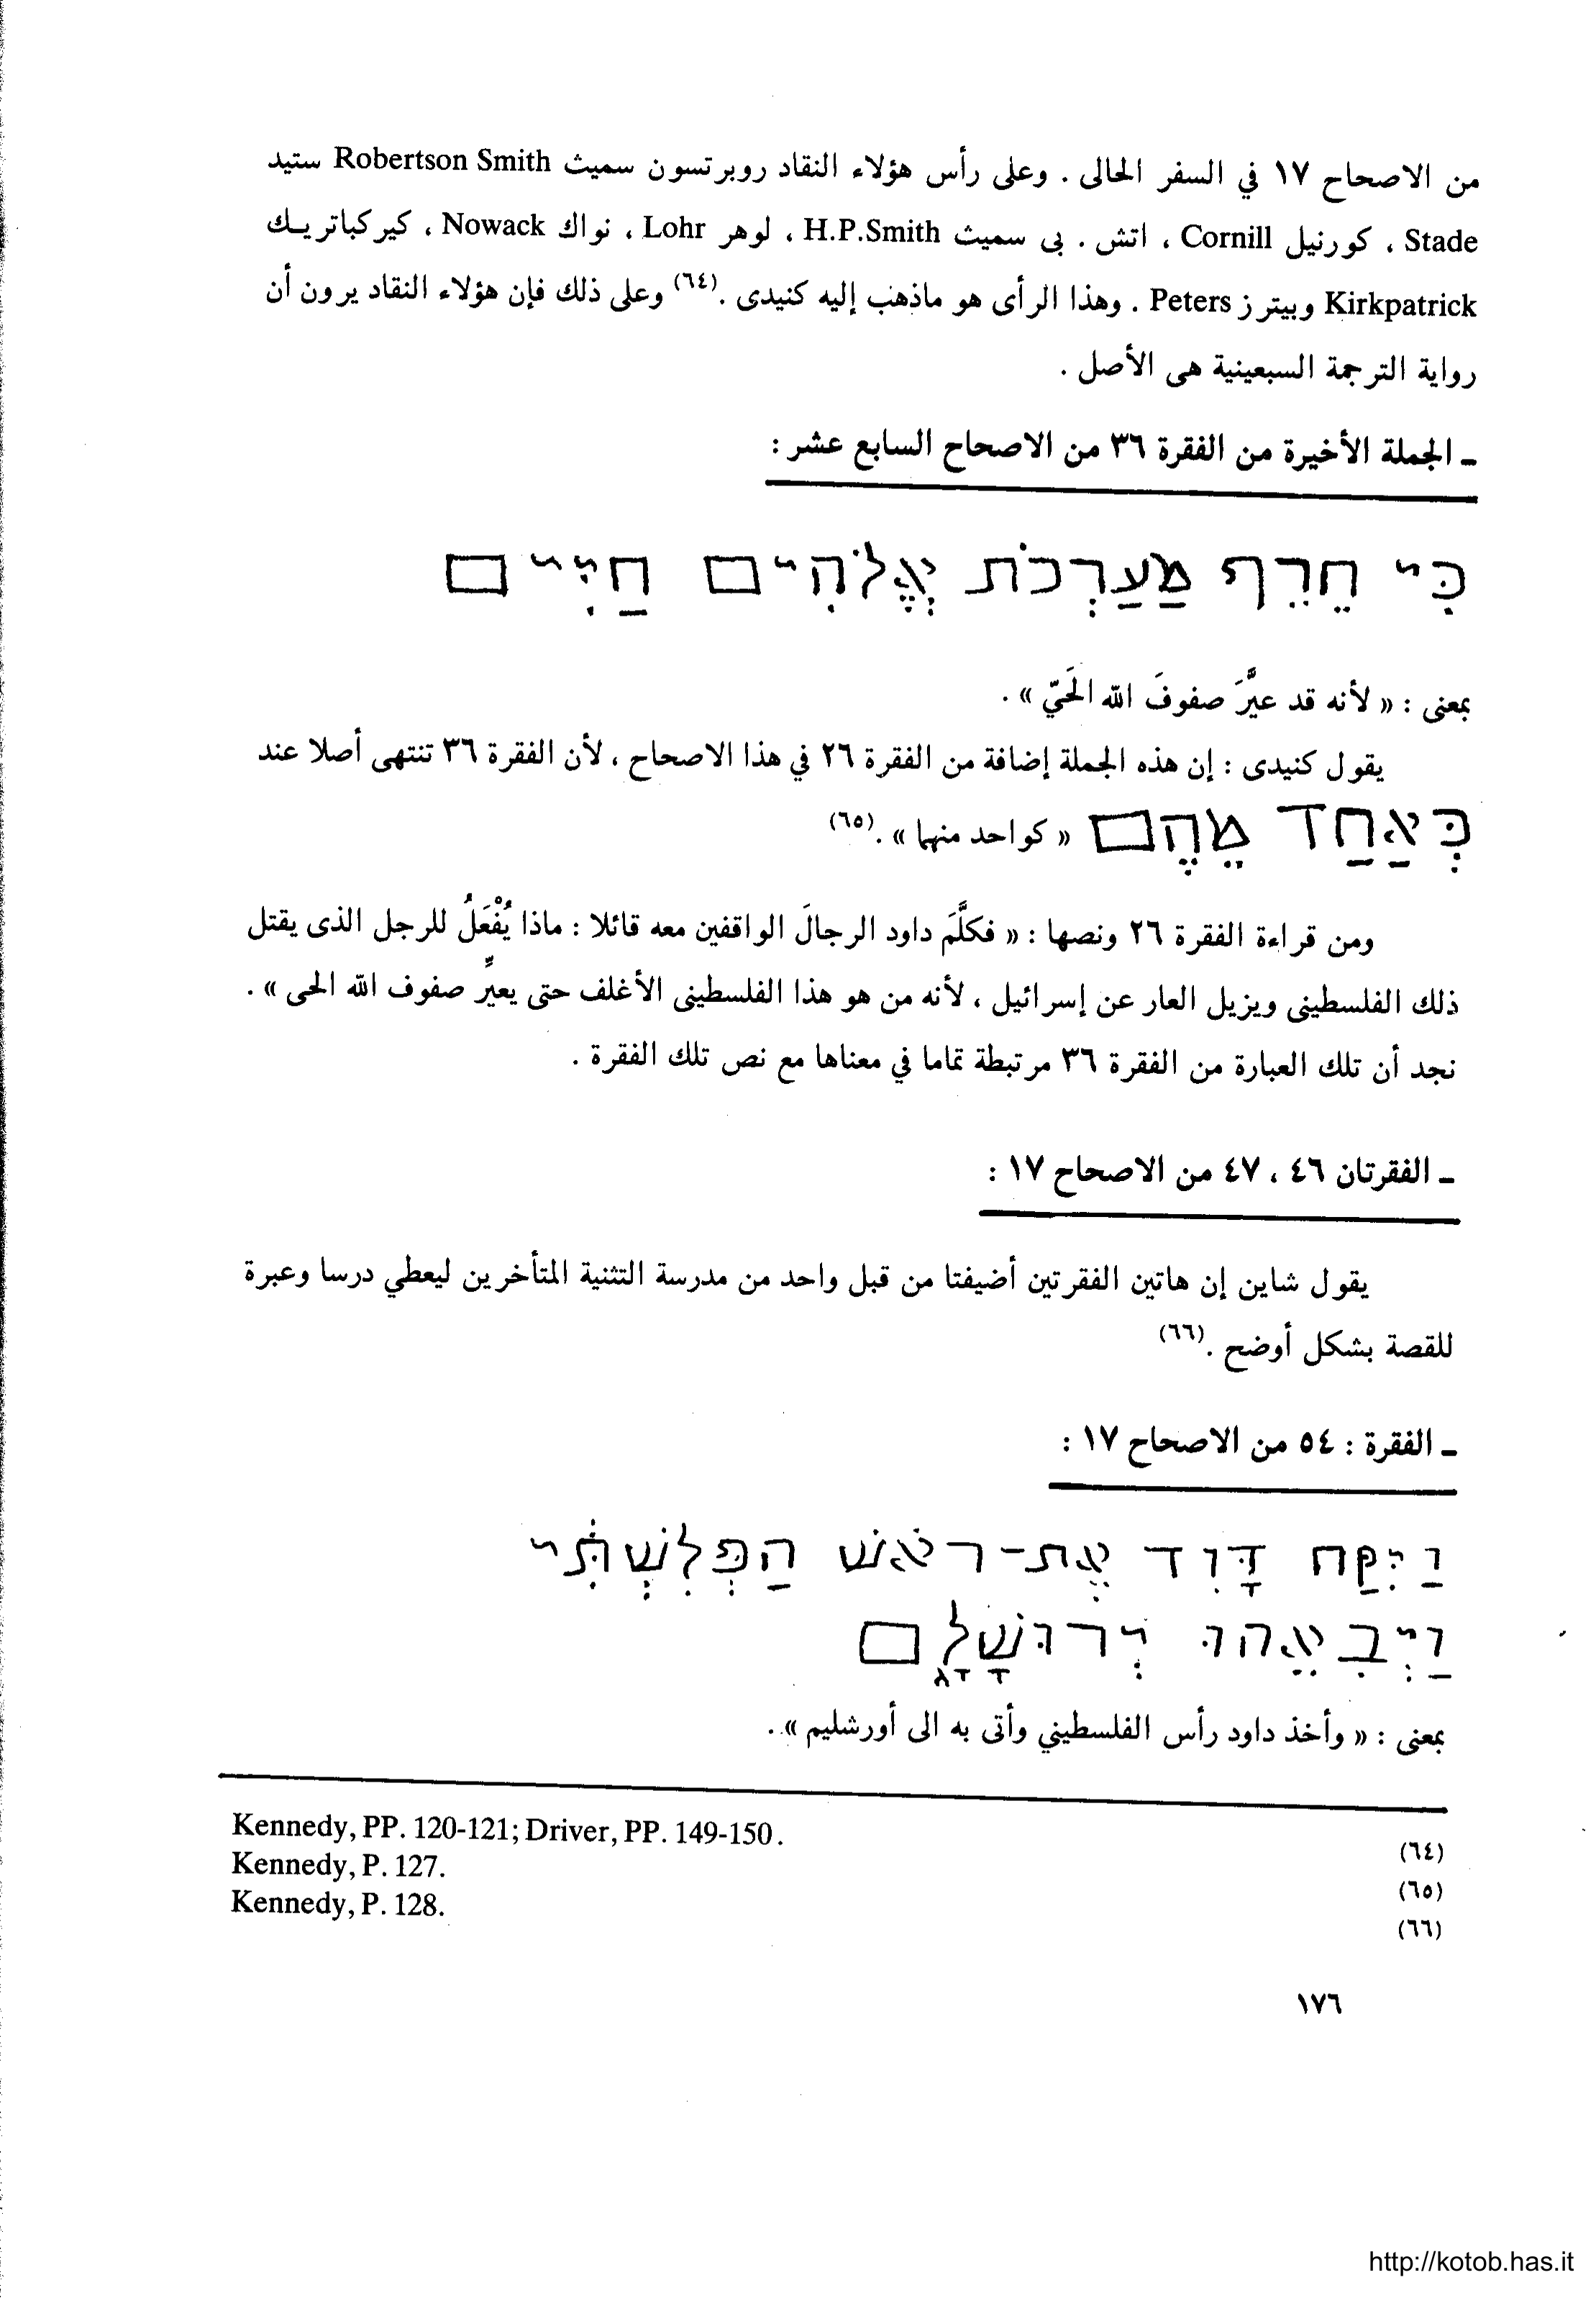 من الاصحاح ١٧ في السفر الحالى . وعلى رأس هؤلاء النقاد روبرتسون سميث Robertson Smith ستيد
Stade ، كورنيل Cornill ، اتش . بى سميث H.P.Smith ، لوهر Lohr ، نواك Nowack ، كيركباتريـك
Kirkpatrick وبيترز Peters . وهذا الرأى هو ماذهب إليه كنيدى .(٦٤) وعلى ذلك فإن هؤلاء النقاد يرون أن
رواية الترجمة السبعينية هى الأصل .
ـ الجملة الأخيرة من الفقرة ٣٦ من الاصحاح السابع عشر :
כִּי חֵרֵף מַעַרְכֹת אֱלֹהִים חַיִּים
بمعنى : « لأنه قد عيَّرَ صفوفَ الله الحَيّ » .
يقول كنيدى : إن هذه الجملة إضافة من الفقرة ٢٦ في هذا الاصحاح ، لأن الفقرة ٣٦ تنتهى أصلا عند
כְּאַחַד מֵהֶם « كواحد منهما » .(٦٥)
ومن قراءة الفقرة ٢٦ ونصها : « فكلَّمَ داود الرجالَ الواقفين معه قائلا : ماذا يُفْعَلُ للرجل الذى يقتل
ذلك الفلسطينى ويزيل العار عن إسرائيل ، لأنه من هو هذا الفلسطينى الأغلف حتى يعيِّر صفوف الله الحى » .
نجد أن تلك العبارة من الفقرة ٣٦ مرتبطة تماما في معناها مع نص تلك الفقرة .
ـ الفقرتان ٤٦ ، ٤٧ من الاصحاح ١٧ :
يقول شاين إن هاتين الفقرتين أضيفتا من قبل واحد من مدرسة التثنية المتأخرين ليعطي درسا وعبرة
للقصة بشكل أوضح .(٦٦)
ـ الفقرة : ٥٤ من الاصحاح ١٧ :
וַיִּקַּח דָּוִד אֶת-רֹאשׁ הַפְּלִשְׁתִּי
וַיְבִאֵהוּ יְרוּשָׁלָםִ
بمعنى : « وأخذ داود رأس الفلسطيني وأتى به الى أورشليم » .
(٦٤) Kennedy, PP. 120-121; Driver, PP. 149-150.
(٦٥) Kennedy, P. 127.
(٦٦) Kennedy, P. 128.
١٧٦
http://kotob.has.it